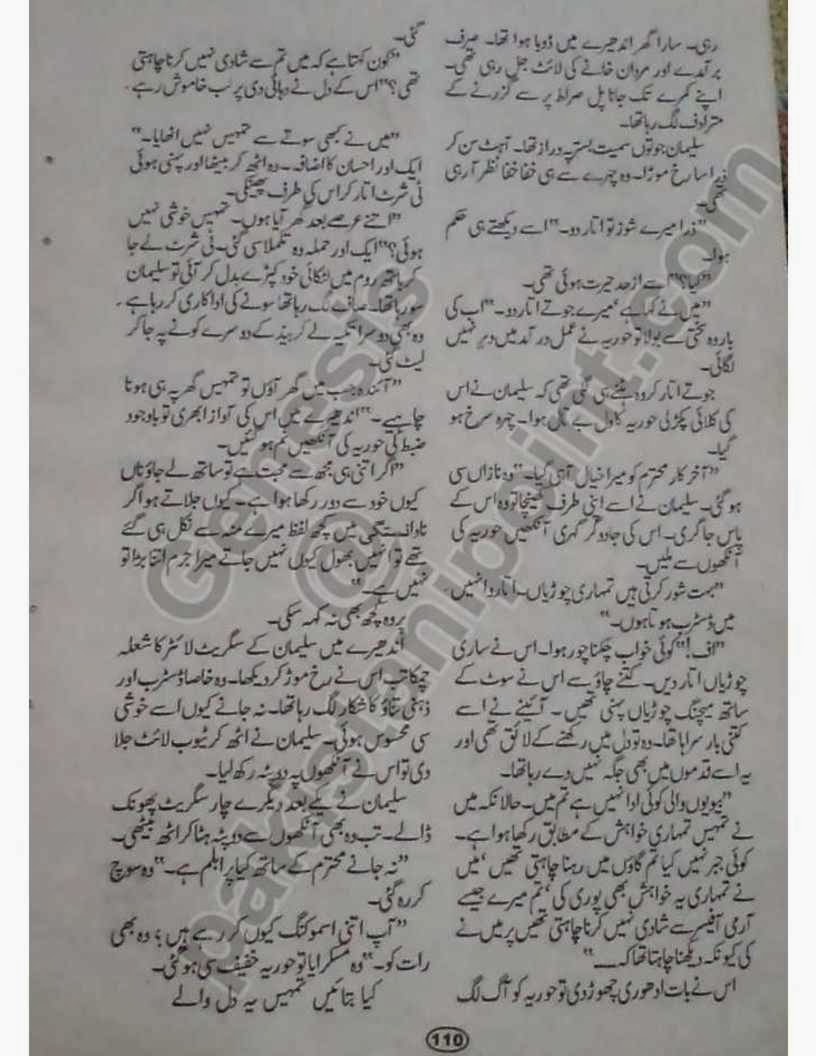 رہی۔ سارا گھر اندھیرے میں ڈوبا ہوا تھا۔ صرف
برآمدے اور مردان خانے کی لائٹ جل رہی تھی۔
اپنے کمرے تک جانا پل صراط پر سے گزرنے کے
مترادف لگ رہا تھا۔
سلیمان جوتوں سمیت بستر پہ دراز تھا۔ آہٹ سن کر
ذرا سا رخ موڑا۔ وہ چہرے سے ہی خفا خفا نظر آ رہی
تھی۔
"ذرا میرے شوز تو اتار دو۔" اسے دیکھتے ہی حکم
ہوا۔
"کیا؟" اسے از حد حیرت ہوئی تھی۔
"میں نے کہا ہے 'میرے جوتے اتار دو۔" اب کی
بار وہ سختی سے بولا تو حوریہ نے عمل در آمد میں دیر نہیں
لگائی۔
جوتے اتار کر وہ ہٹنے ہی لگی تھی کہ سلیمان نے اس
کی کلائی پکڑ لی حوریہ کا دل بے تال ہوا۔ چہرہ سرخ ہو
گیا۔
"آخر کار محترم کو میرا خیال آ ہی گیا۔" وہ نازاں سی
ہو گئی۔ سلیمان نے اسے اپنی طرف کھینچا تو وہ اس کے
پاس جا گری۔ اس کی جادوگر گہری آنکھیں حوریہ کی
آنکھوں سے ملیں۔
"بہت شور کرتی ہیں تمہاری چوڑیاں۔ اتارو انہیں
میں ڈسٹرب ہوتا ہوں۔"
"اف!" کوئی خواب چکنا چور ہوا۔ اس نے ساری
چوڑیاں اتار دیں۔ کتنے چاؤ سے اس نے سوٹ کے
ساتھ میچنگ چوڑیاں پہنی تھیں۔ آئینے نے اسے
کتنی بار سراہا تھا۔ وہ تو دل میں رکھنے کے لائق تھی اور
یہ اسے قدموں میں بھی جگہ نہیں دے رہا تھا۔
"بیویوں والی کوئی ادا نہیں ہے تم میں۔ حالانکہ میں
نے تمہیں تمہاری خواہش کے مطابق رکھا ہوا ہے۔
کوئی جبر نہیں کیا تم گاؤں میں رہنا چاہتی تھیں 'میں
نے تمہاری یہ خواہش بھی پوری کی 'تم میرے جیسے
آرمی آفیسر سے شادی نہیں کرنا چاہتی تھیں پر میں نے
کی کیونکہ دیکھنا چاہتا تھا کہ ــــ"
اس نے بات ادھوری چھوڑ دی تو حوریہ کو آگ لگ
گئی۔
"کون کہتا ہے کہ میں تم سے شادی نہیں کرنا چاہتی
تھی؟" اس کے دل نے دہائی دی پر لب خاموش رہے۔
"میں نے کبھی سوتے سے تمہیں نہیں اٹھایا۔"
ایک اور احسان کا اضافہ۔ وہ اٹھ کر بیٹھا اور پہنی ہوئی
ٹی شرٹ اتار کر اس کی طرف پھینکی۔
"اتنے عرصے بعد گھر آیا ہوں۔ تمہیں خوشی نہیں
ہوئی؟" ایک اور حملہ وہ تلملا سی گئی۔ ٹی شرٹ لے جا
کر باتھ روم میں لٹکائی خود کپڑے بدل کر آئی تو سلیمان
سو رہا تھا۔ صاف لگ رہا تھا سونے کی اداکاری کر رہا ہے۔
وہ بھی دوسرا تکیہ لے کر بیڈ کے دوسرے کونے پہ جا کر
لیٹ گئی۔
"آئندہ جب میں گھر آؤں تو تمہیں گھر پہ ہی ہونا
چاہیے۔" اندھیرے میں اس کی آواز ابھری تو باوجود
ضبط کے حوریہ کی آنکھیں نم ہو گئیں۔
"اگر اتنی ہی مجھ سے محبت ہے تو ساتھ لے جاؤ ناں
کیوں خود سے دور رکھا ہوا ہے۔ کیوں جلاتے ہو اگر
نادانستگی میں کچھ لفظ میرے منہ سے نکل ہی گئے
تھے تو انہیں بھول کیوں نہیں جاتے میرا جرم اتنا بڑا تو
نہیں ہے۔"
پر وہ کچھ بھی نہ کہہ سکی۔
اندھیرے میں سلیمان کے سگریٹ لائٹر کا شعلہ
چمکا تب اس نے رخ موڑ کر دیکھا۔ وہ خاصا ڈسٹرب اور
ذہنی تناؤ کا شکار لگ رہا تھا۔ نہ جانے کیوں اسے خوشی
سی محسوس ہوئی۔ سلیمان نے اٹھ کر ٹیوب لائٹ جلا
دی تو اس نے آنکھوں پہ دوپٹہ رکھ لیا۔
سلیمان نے یکے بعد دیگرے چار سگریٹ پھونک
ڈالے۔ تب وہ بھی آنکھوں سے دوپٹہ ہٹا کر اٹھ بیٹھی۔
"نہ جانے محترم کے ساتھ کیا پرابلم ہے۔" وہ سوچ
کر رہ گئی۔
"آپ اتنی اسموکنگ کیوں کر رہے ہیں؛ وہ بھی
رات کو۔" وہ مسکرایا تو حوریہ خفیف سی ہو گئی۔
کیا بتائیں تمہیں یہ دل والے
110
Genesis
@
pakistanipoint.com